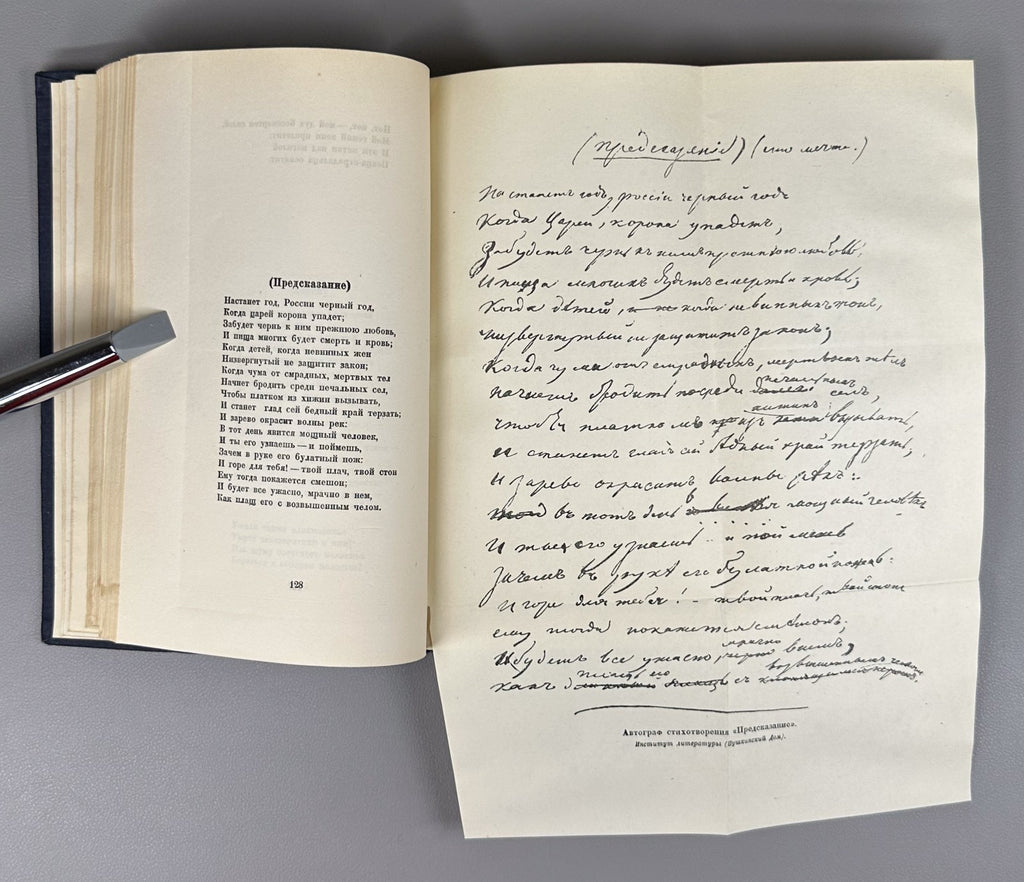 (Предсказание)
Настанет год, России черный год,
Когда царей корона упадет;
Забудет чернь к ним прежнюю любовь,
И пища многих будет смерть и кровь;
Когда детей, когда невинных жен
Низвергнутый не защитит закон;
Когда чума от смрадных, мертвых тел
Начнет бродить среди печальных сел,
Чтобы платком из хижин вызывать,
И станет глад сей бедный край терзать;
И зарево окрасит волны рек:
В тот день явится мощный человек,
И ты его узнаешь — и поймешь,
Зачем в руке его булатный нож:
И горе для тебя! — твой плач, твой стон
Ему тогда покажется смешон;
И будет все ужасно, мрачно в нем,
Как плащ его с возвышенным челом.
128
(Предсказаніе) (это мечта.)
Настанетъ годъ, россіи черный годъ
Когда Царей, корона упадетъ,
Забудетъ чернь къ нимъ прежнюю любовь,
И пища многихъ будетъ смерть и кровь;
Когда дѣтей, когда невинныхъ женъ,
низвергнутый не защититъ законъ;
Когда чума отъ смрадныхъ, мертвыхъ тѣлъ
начнетъ бродить посреди печальныхъ селъ,
чтобы платкомъ изъ хижинъ вызывать,
и станетъ гладъ сей бѣдный край терзать,
И зарево окраситъ волны рѣкъ:
въ тотъ день явится мощный человѣкъ
И ты его узнаешь и поймешь
Зачемъ въ рукѣ его булатной ножъ.
И горе для тебя! – твой плачъ, твой стонъ
ему тогда покажется смѣшонъ;
И будетъ все ужасно, мрачно въ немъ,
какъ плащъ его съ возвышеннымъ челомъ.
Автограф стихотворения «Предсказание».
Институт литературы (Пушкинский Дом).